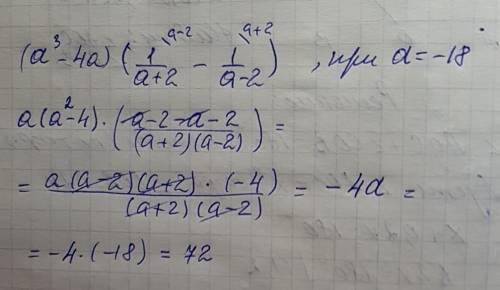 (a³-4a)(1/(a+2) \a-2 - 1/(a-2) \a+2), при a=-18
a(a²-4)·((a-2-a-2)/((a+2)(a-2)))=
= (a(a-2)(a+2)·(-4))/((a+2)(a-2)) = -4a =
= -4·(-18) = 72